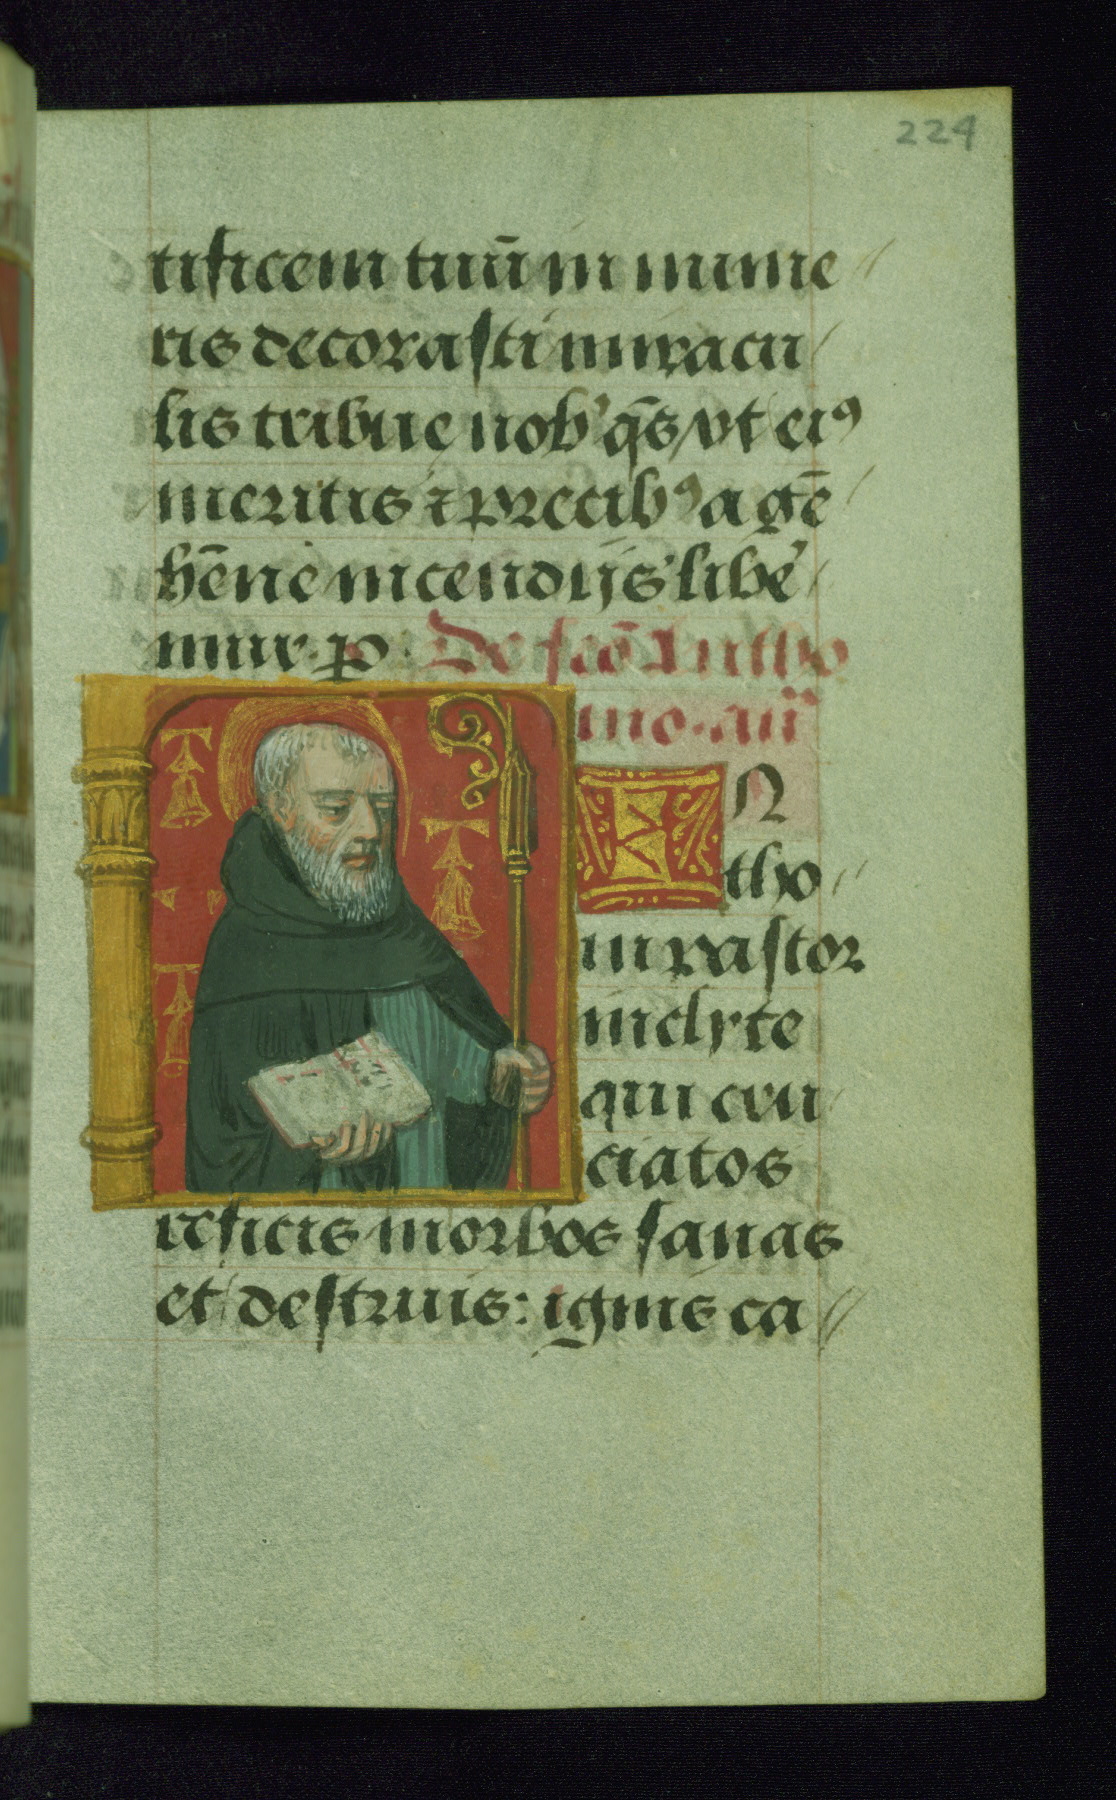 224
tificem tuū in nume
ris decorasti miracu
lis tribue nob' q̄s ut eiꝰ
meritis ⁊ precibꝰ a gē
hēne incendijs libe'
mur. p̄. De scō Antho
nio. añ
N
tho
ni pastor
inclyte
qui cru
ciatos
reficis morbos sanas
et destruis: ignis ca